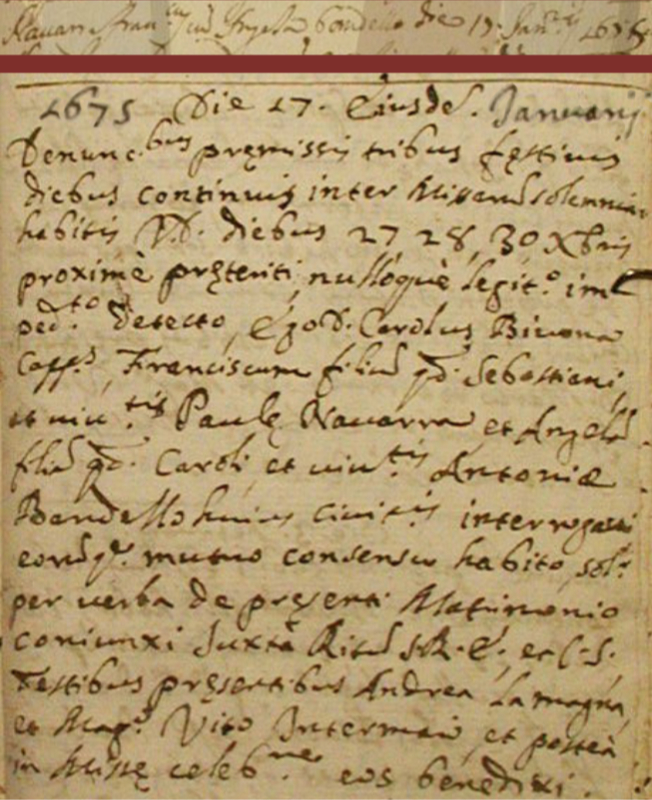 Nauarr Fran.cu cu Angela bondello die 17. Jan.rij 1675
1675 Die 17. Eiusde. Januarij
Denunc.bus pręmissis tribus fęstiuis
diebus continuis inter Missarũ solemnia
habitis VD. diebus 27 28, 30 Xbris
proximè pręteriti nullóque legit.o im
ped.to detecto, Ego D. Carolus Biuona
Capp.s Franciscum filiũ qd. Sebastiani,
et uiu.tis Paulę Nauarra et Angelã
filiã qd. Caroli et uiu.tis Antoniæ
Bandello huius ciuitis interrogaui
eorũq. mutuo consensu habito, sol.r
per uerba de pręsenti Matrimonio
coniunxi Juxtà Ritũ S.R.E. et C.S.
Testibus pręsentibus Andrea La magna,
et Mag.o Vito Intermai et posteà
in Missę celeb.ne eos benedixi.